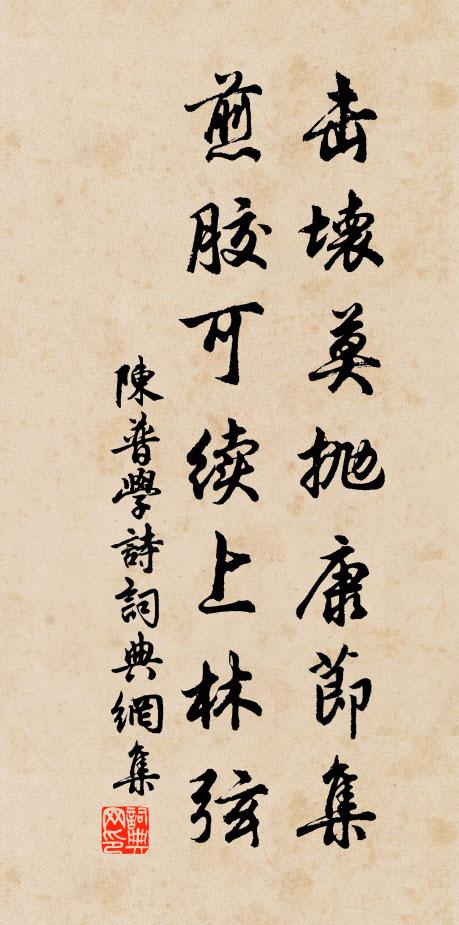 击壞莫抛康節集
煎胶可續上林弦
陳普學詩詞典網集
詞典
网印